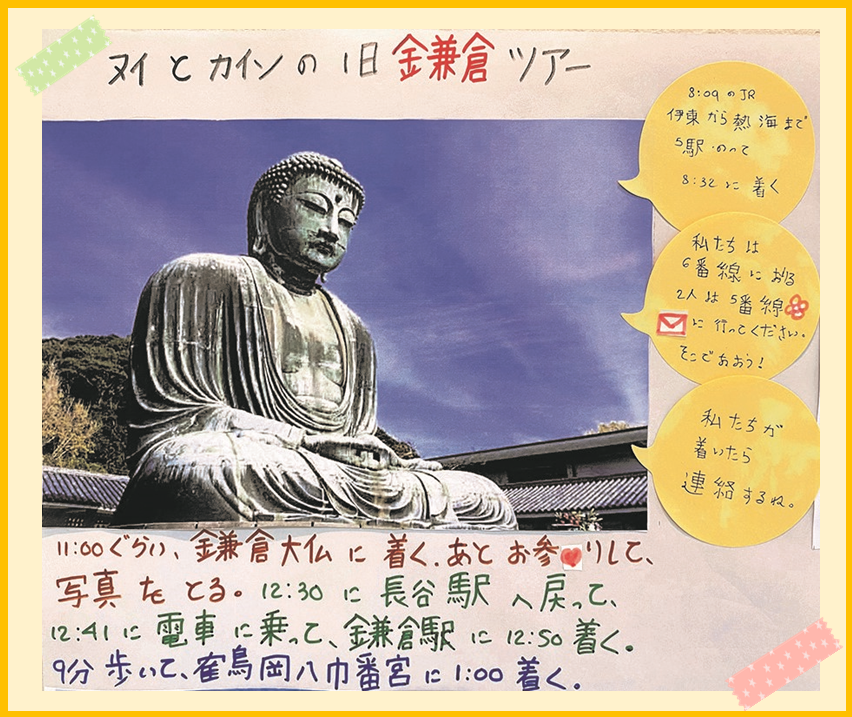 ヌイとカインの1日金兼倉ツアー
8:09のJR
伊東から熱海まで
5駅のって
8:32に着く
私たちは
6番線におりる
2人は5番線
に行ってください。
そこであおう!
私たちが
着いたら
連絡するね。
11:00ぐらい、金兼倉大仏に着く.あとお参りして、
写真をとる。12:30に長谷駅へ戻って、
12:41に電車に乗って、金兼倉駅に12:50着く。
9分歩いて、寉鳥岡八巾番宮に1:00着く。